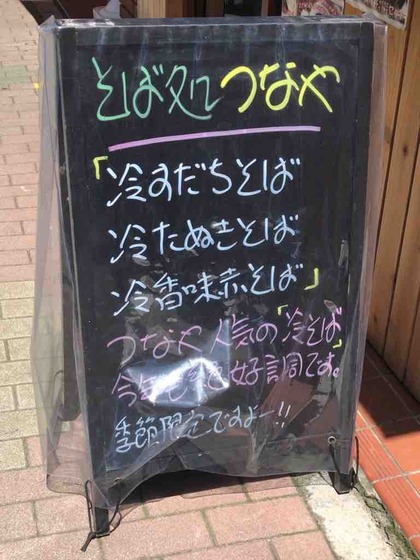 そば処 つなや
「冷すだちそば
冷たぬきそば
冷香味赤そば」
つなや人気の「冷そば」
今年も 好調です。
季節限定ですよー!!